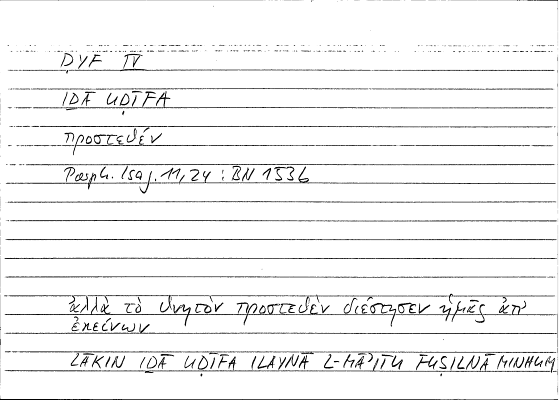 ḌYF IV
IḎĀ UḌĪFA
προστεθέν
Porph. Isag. 11,24 : BN 153b
ἀλλὰ τὸ θνητὸν προστεθὲν διέστησεν ἡμᾶς ἀπ'
ἐκείνων
LĀKIN IḎĀ UḌĪFA ILAYNĀ L-MĀʾITU FUṢILNĀ MINHUM